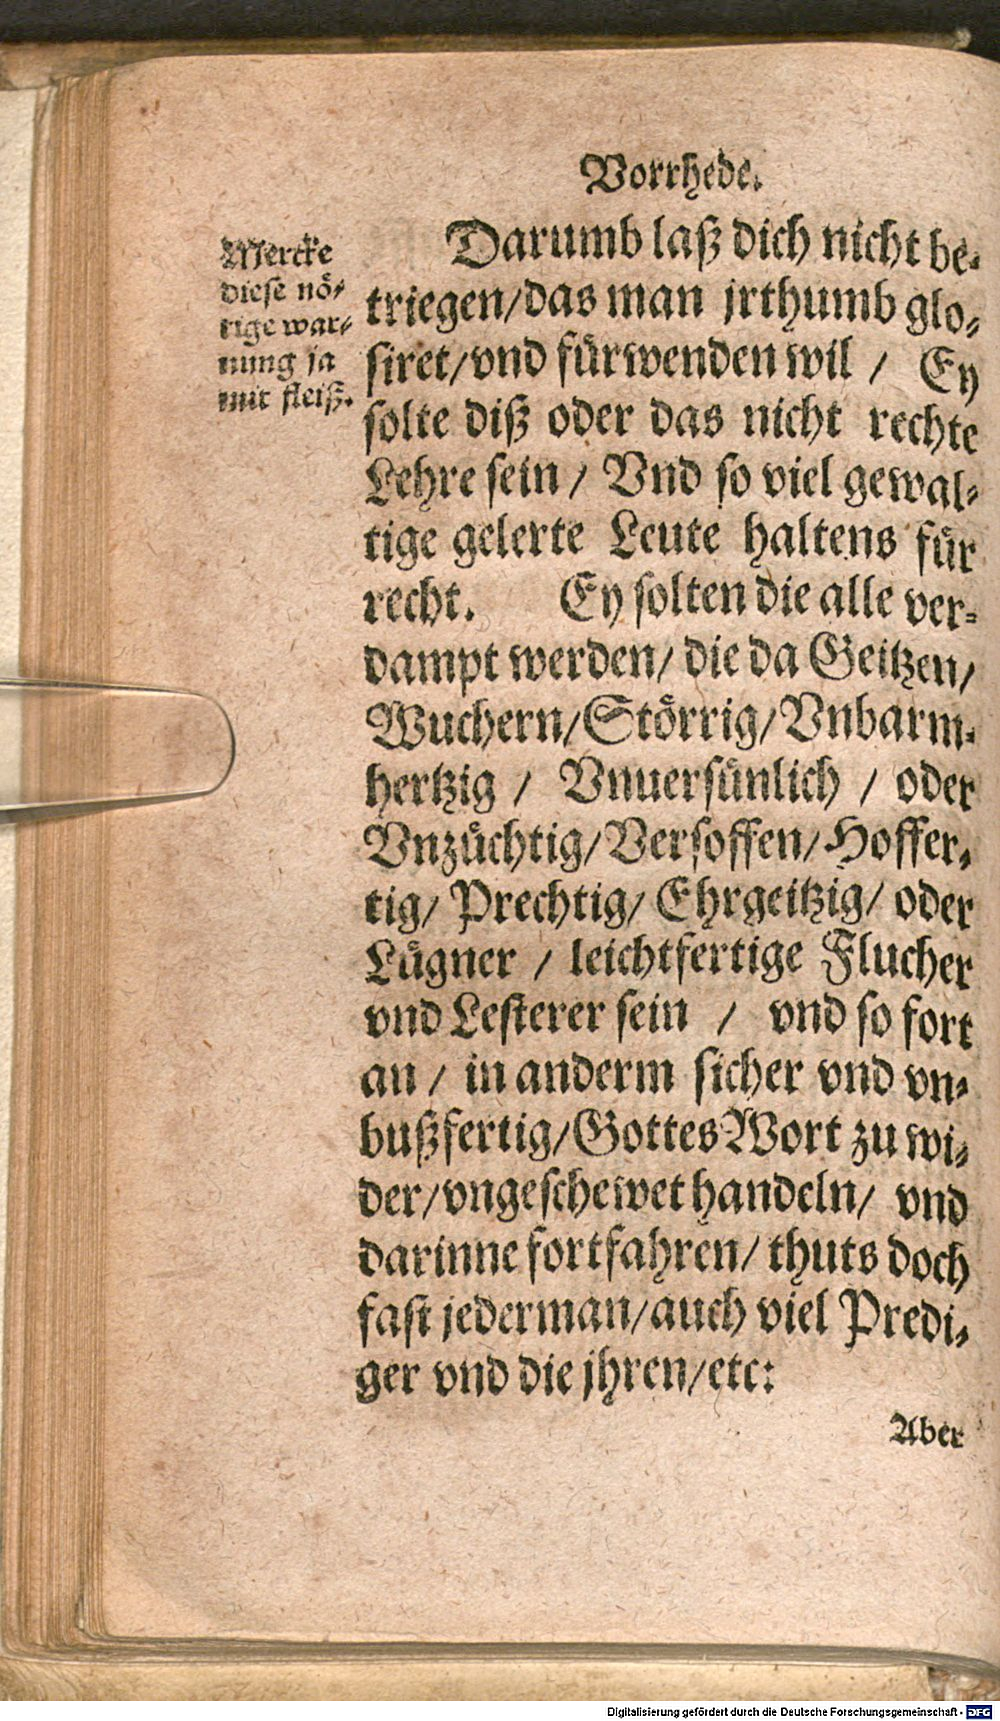 Vorrhede.
Mercke
diese nö-
tige war-
nung ja
mit fleiß.
Darumb laß dich nicht be-
triegen/das man jrthumb glo-
siret/vnd fürwenden wil / Ey
solte diß oder das nicht rechte
Lehre sein / Vnd so viel gewal-
tige gelerte Leute haltens für
recht. Ey solten die alle ver-
dampt werden/ die da Geitzen/
Wuchern/Störrig/Vnbarm-
hertzig / Vnuersünlich / oder
Vnzüchtig/Versoffen/Hoffer-
tig/ Prechtig/ Ehrgeitzig/ oder
Lügner / leichtfertige Flucher
vnd Lesterer sein / vnd so fort
an / in anderm sicher vnd vn-
bußfertig/Gottes Wort zu wi-
der/vngeschewet handeln/ vnd
darinne fortfahren/ thuts doch
fast jederman/auch viel Predi-
ger vnd die jhren/etc:
Aber
Digitalisierung gefördert durch die Deutsche Forschungsgemeinschaft - DFG